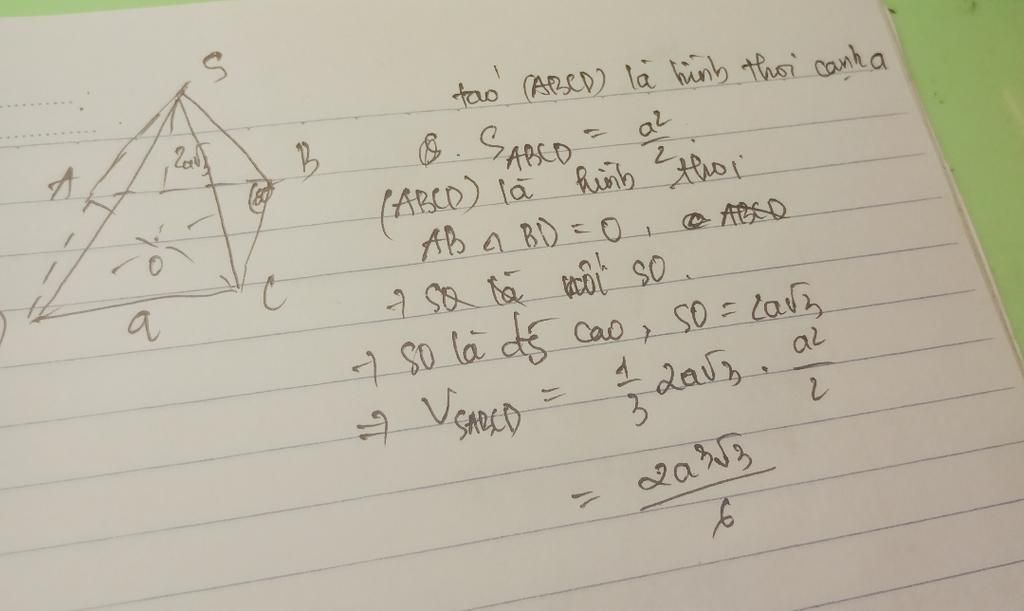 S
A
B
2a√3
60
O
C
a
(ABCD) là hình thoi cạnh a
S_ABCD = a²/2
(ABCD) là hình thoi
AB ∩ BD = O,
→ SO là SO.
→ SO là đg cao, SO = 2a√3
⇒ V_SABCD = 1/3 2a√3 . a²/2
= 2a³√3/6